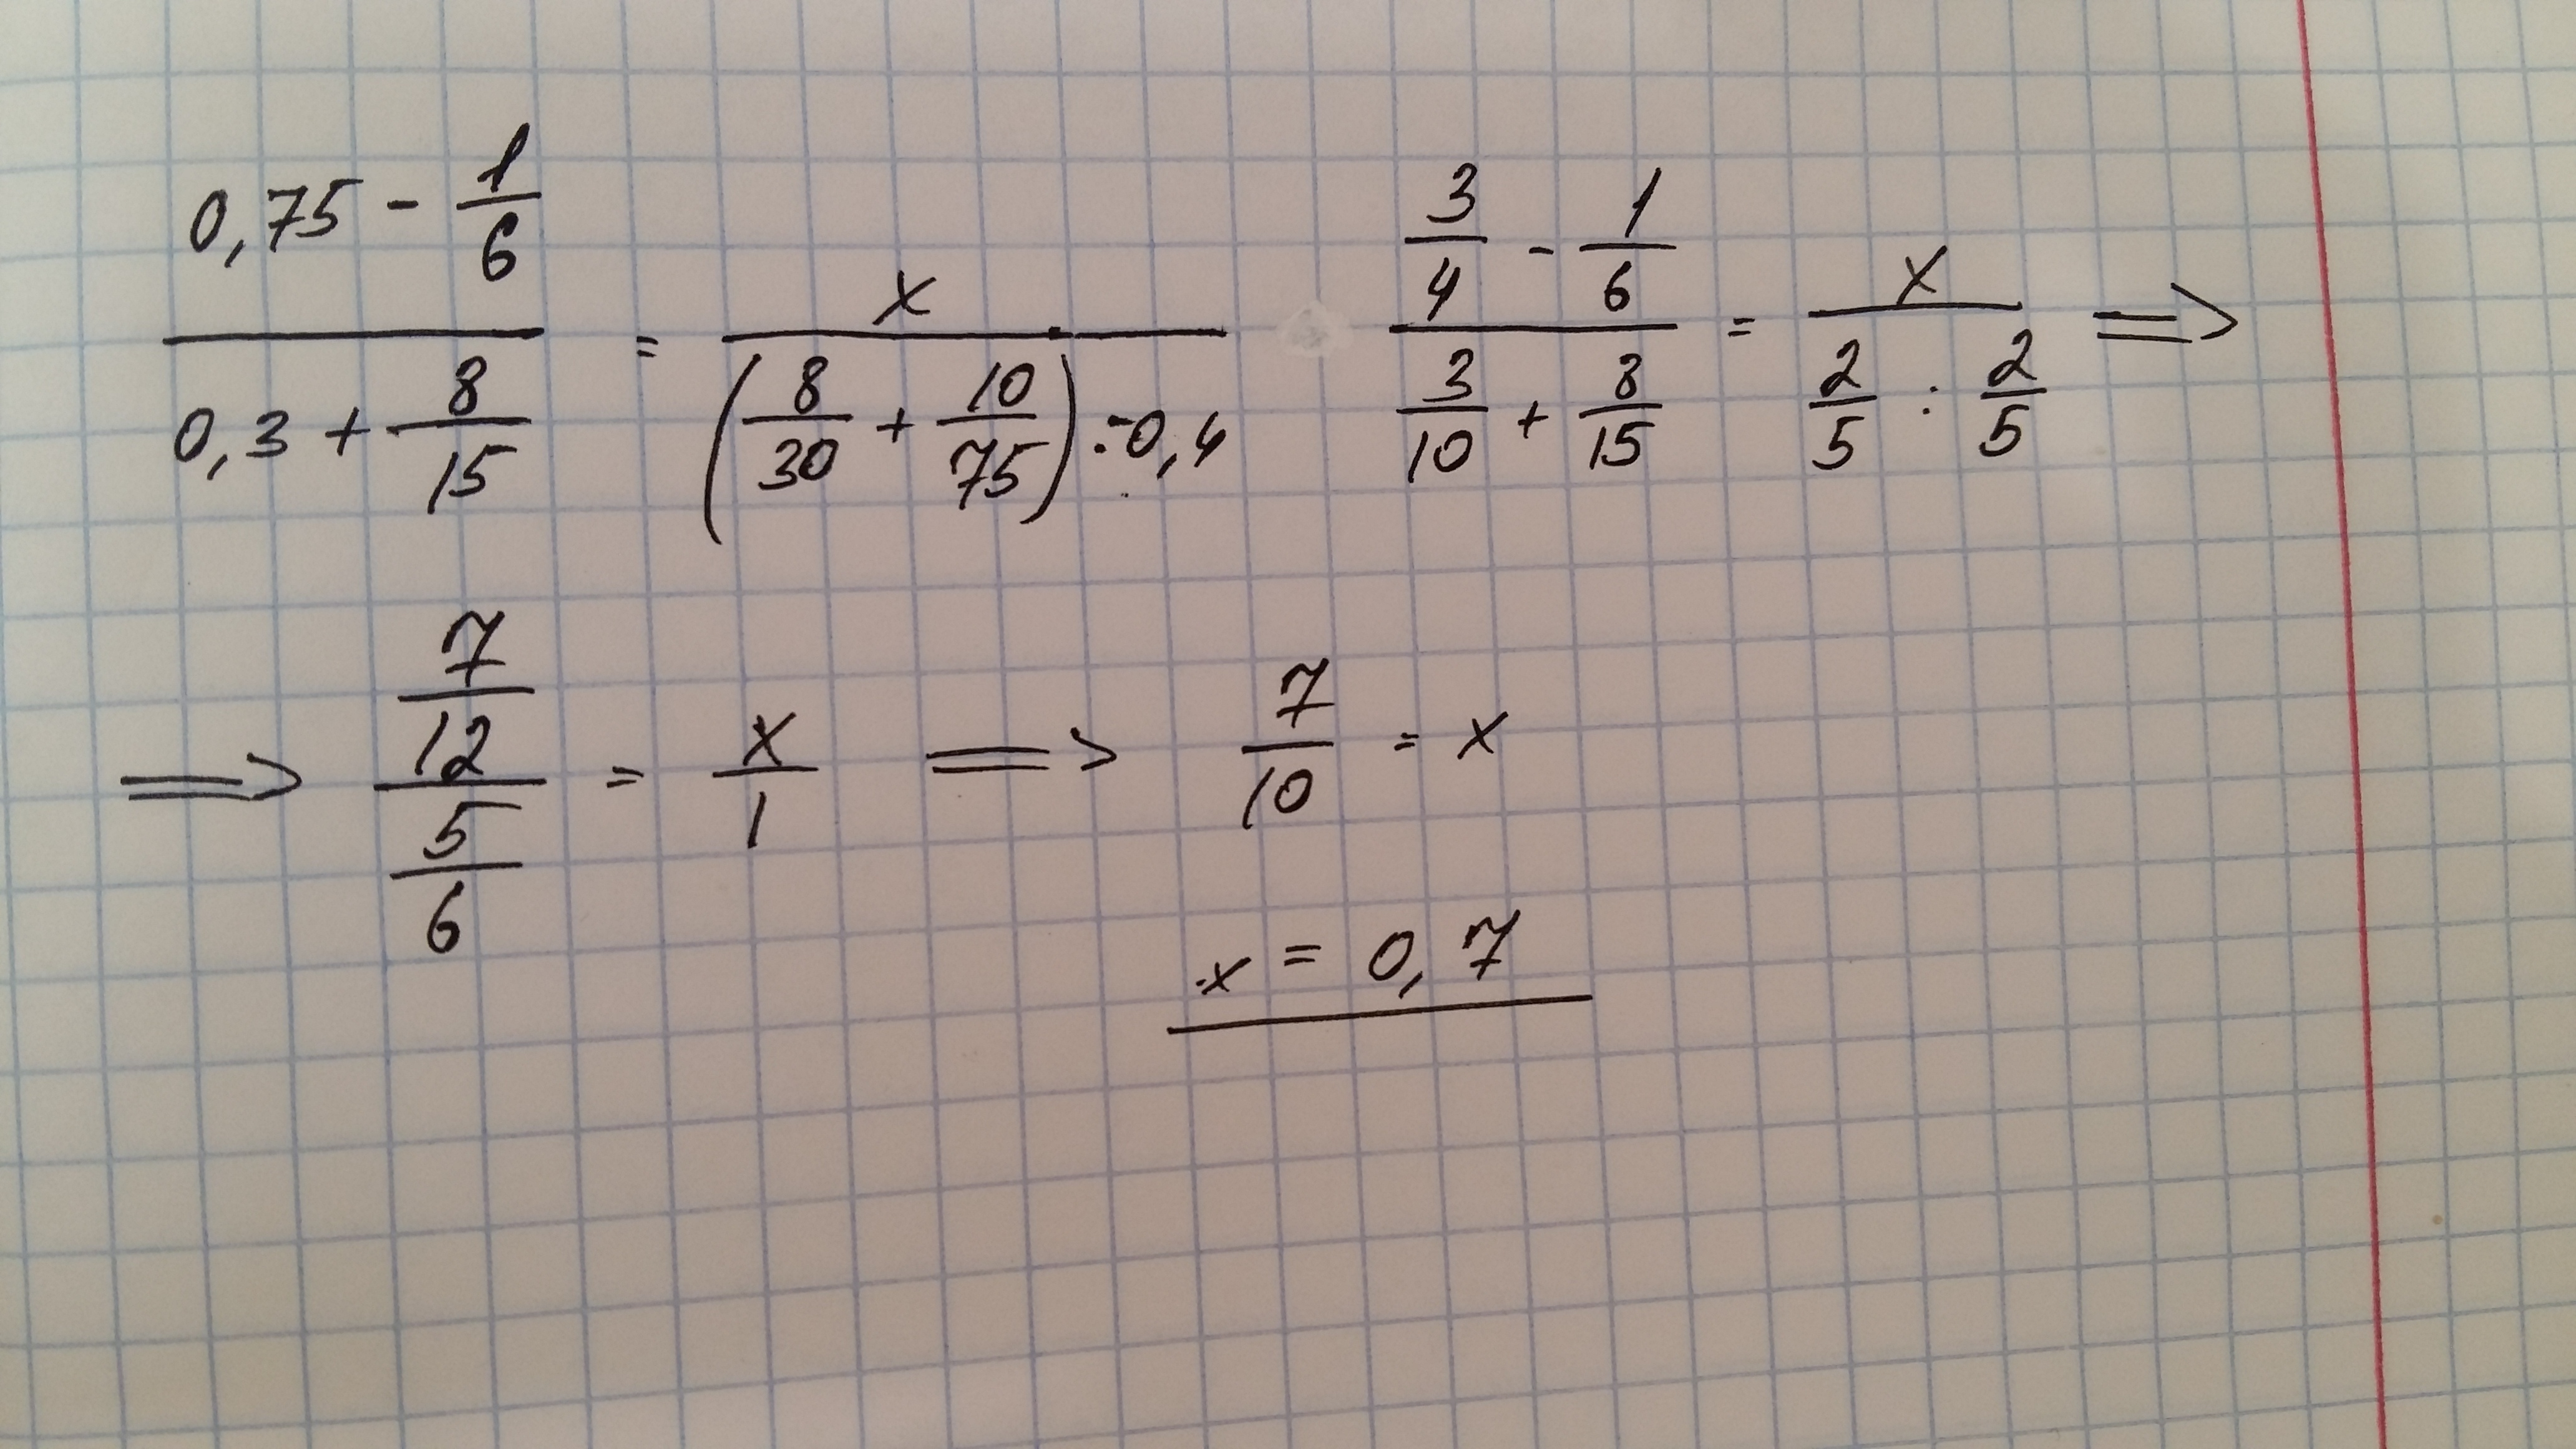 (0,75 - 1/6)/(0,3 + 8/15) = x/((8/30 + 10/75) : 0,4)
(3/4 - 1/6)/(3/10 + 8/15) = x/(2/5 : 2/5) =>
=> (7/12)/(5/6) = x/1 => 7/10 = x
x = 0,7